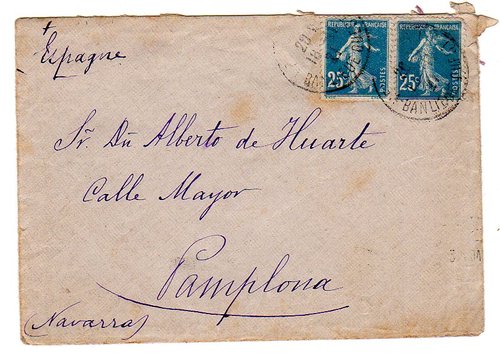 Espagne
REPUBLIQUE FRANÇAISE REPUBLIQUE FRANÇAISE
25c 25c
BANLIEUE
Sr. Dn Alberto de Huarte
Calle Mayor
Pamplona
(Navarra)